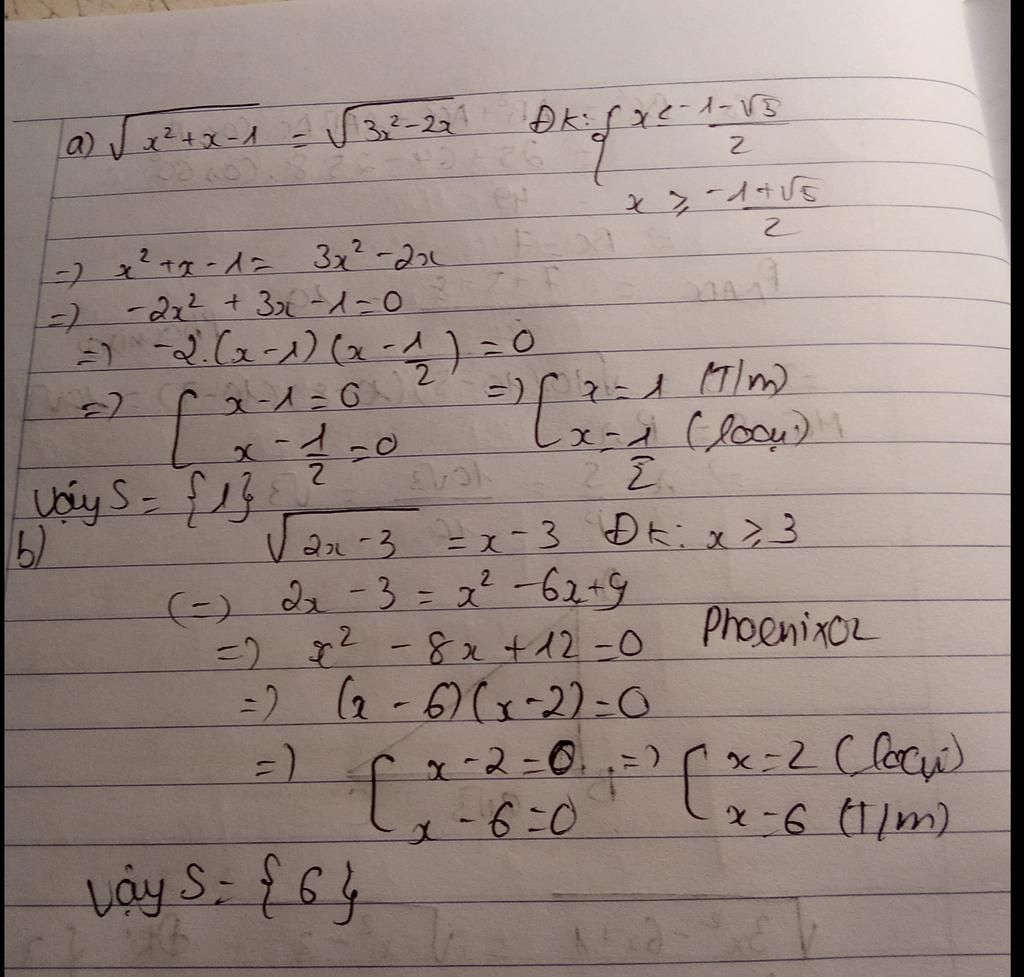 a) √(x²+x-1) = √(3x²-2x) ĐK: { x < (-1-√5)/2
x ≥ (-1+√5)/2
=> x²+x-1 = 3x²-2x
=> -2x² + 3x - 1 = 0
=> -2.(x-1)(x-1/2) = 0
=> [ x-1=0 => [ x=1 (T/m)
x - 1/2 = 0 x = 1/2 (loại)
Vậy S = {1}
b) √(2x-3) = x-3 ĐK: x ≥ 3
(=) 2x-3 = x² - 6x+9
=> x² - 8x + 12 = 0 Phoenixoz
=> (x-6)(x-2)=0
=> [ x-2=0 => [ x=2 (loại)
x-6=0 x=6 (T/m)
Vậy S = {6}